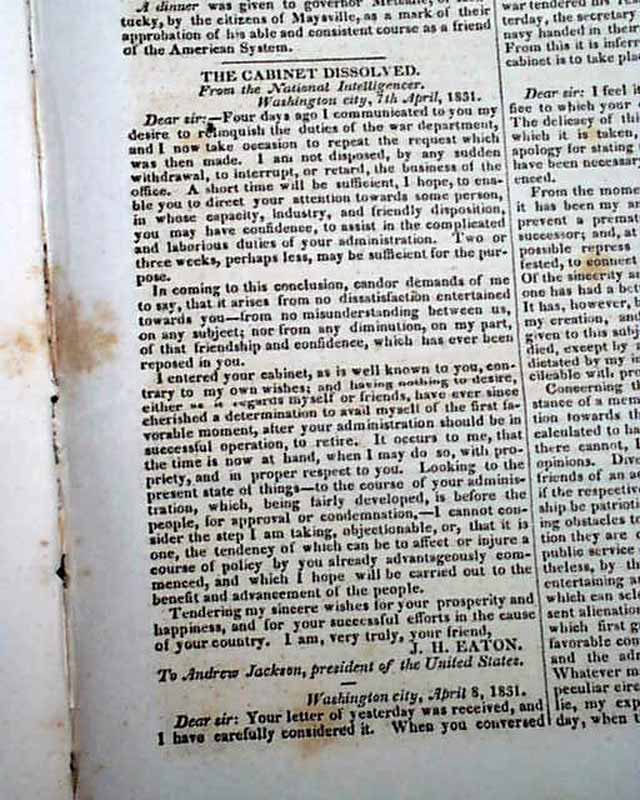 A dinner was given to governor Metcalfe, of Ken-
tucky, by the citizens of Maysville, as a mark of their
approbation of his able and consistent course as a friend
of the American System.
THE CABINET DISSOLVED.
From the National Intelligencer.
Washington city, 7th April, 1831.
Dear sir:—Four days ago I communicated to you my
desire to relinquish the duties of the war department,
and I now take occasion to repeat the request which
was then made. I am not disposed, by any sudden
withdrawal, to interrupt, or retard, the business of the
office. A short time will be sufficient, I hope, to ena-
ble you to direct your attention towards some person,
in whose capacity, industry, and friendly disposition,
you may have confidence, to assist in the complicated
and laborious duties of your administration. Two or
three weeks, perhaps less, may be sufficient for the pur-
pose.
In coming to this conclusion, candor demands of me
to say, that it arises from no dissatisfaction entertained
towards you—from no misunderstanding between us,
on any subject; nor from any diminution, on my part,
of that friendship and confidence, which has ever been
reposed in you.
I entered your cabinet, as is well known to you, con-
trary to my own wishes; and having nothing to desire,
either as it regards myself or friends, have ever since
cherished a determination to avail myself of the first fa-
vorable moment, after your administration should be in
successful operation, to retire. It occurs to me, that
the time is now at hand, when I may do so, with pro-
priety, and in proper respect to you. Looking to the
present state of things—to the course of your adminis-
tration, which, being fairly developed, is before the
people, for approval or condemnation,—I cannot con-
sider the step I am taking, objectionable, or, that it is
one, the tendency of which can be to affect or injure a
course of policy by you already advantageously com-
menced, and which I hope will be carried out to the
benefit and advancement of the people.
Tendering my sincere wishes for your prosperity and
happiness, and for your successful efforts in the cause
of your country. I am, very truly, your friend,
J. H. EATON.
To Andrew Jackson, president of the United States.
Washington city, April 8, 1831.
Dear sir: Your letter of yesterday was received, and
I have carefully considered it. When you conversed
war tendered his
terday, the secretary
navy handed in their
From this it is infer
cabinet is to take pla
Dear sir: I feel it
fice to which your
The delicacy of thi
which it is taken,
apology for stating
have been necessar
enced.
From the mome
it has been my a
prevent a premat
successor; and, at
possible repress
fested, to connect
Of the sincerity a
one has had a bet
It has, however,
my creation, and
given to this subj
died, except by
dictated by my
cileable with pro
Concerning
stance of a mem
tion towards th
calculated to ha
there cannot, I
opinions. Dive
friends of an a
if the respectiv
ship be patrioti
ing obstacles t
tion they are
public service
theless, by th
entertaining a
which can sel
sent alienation
which first g
favorable con
and the adm
Whatever m
peculiar circ
lie, my exp
day, when t